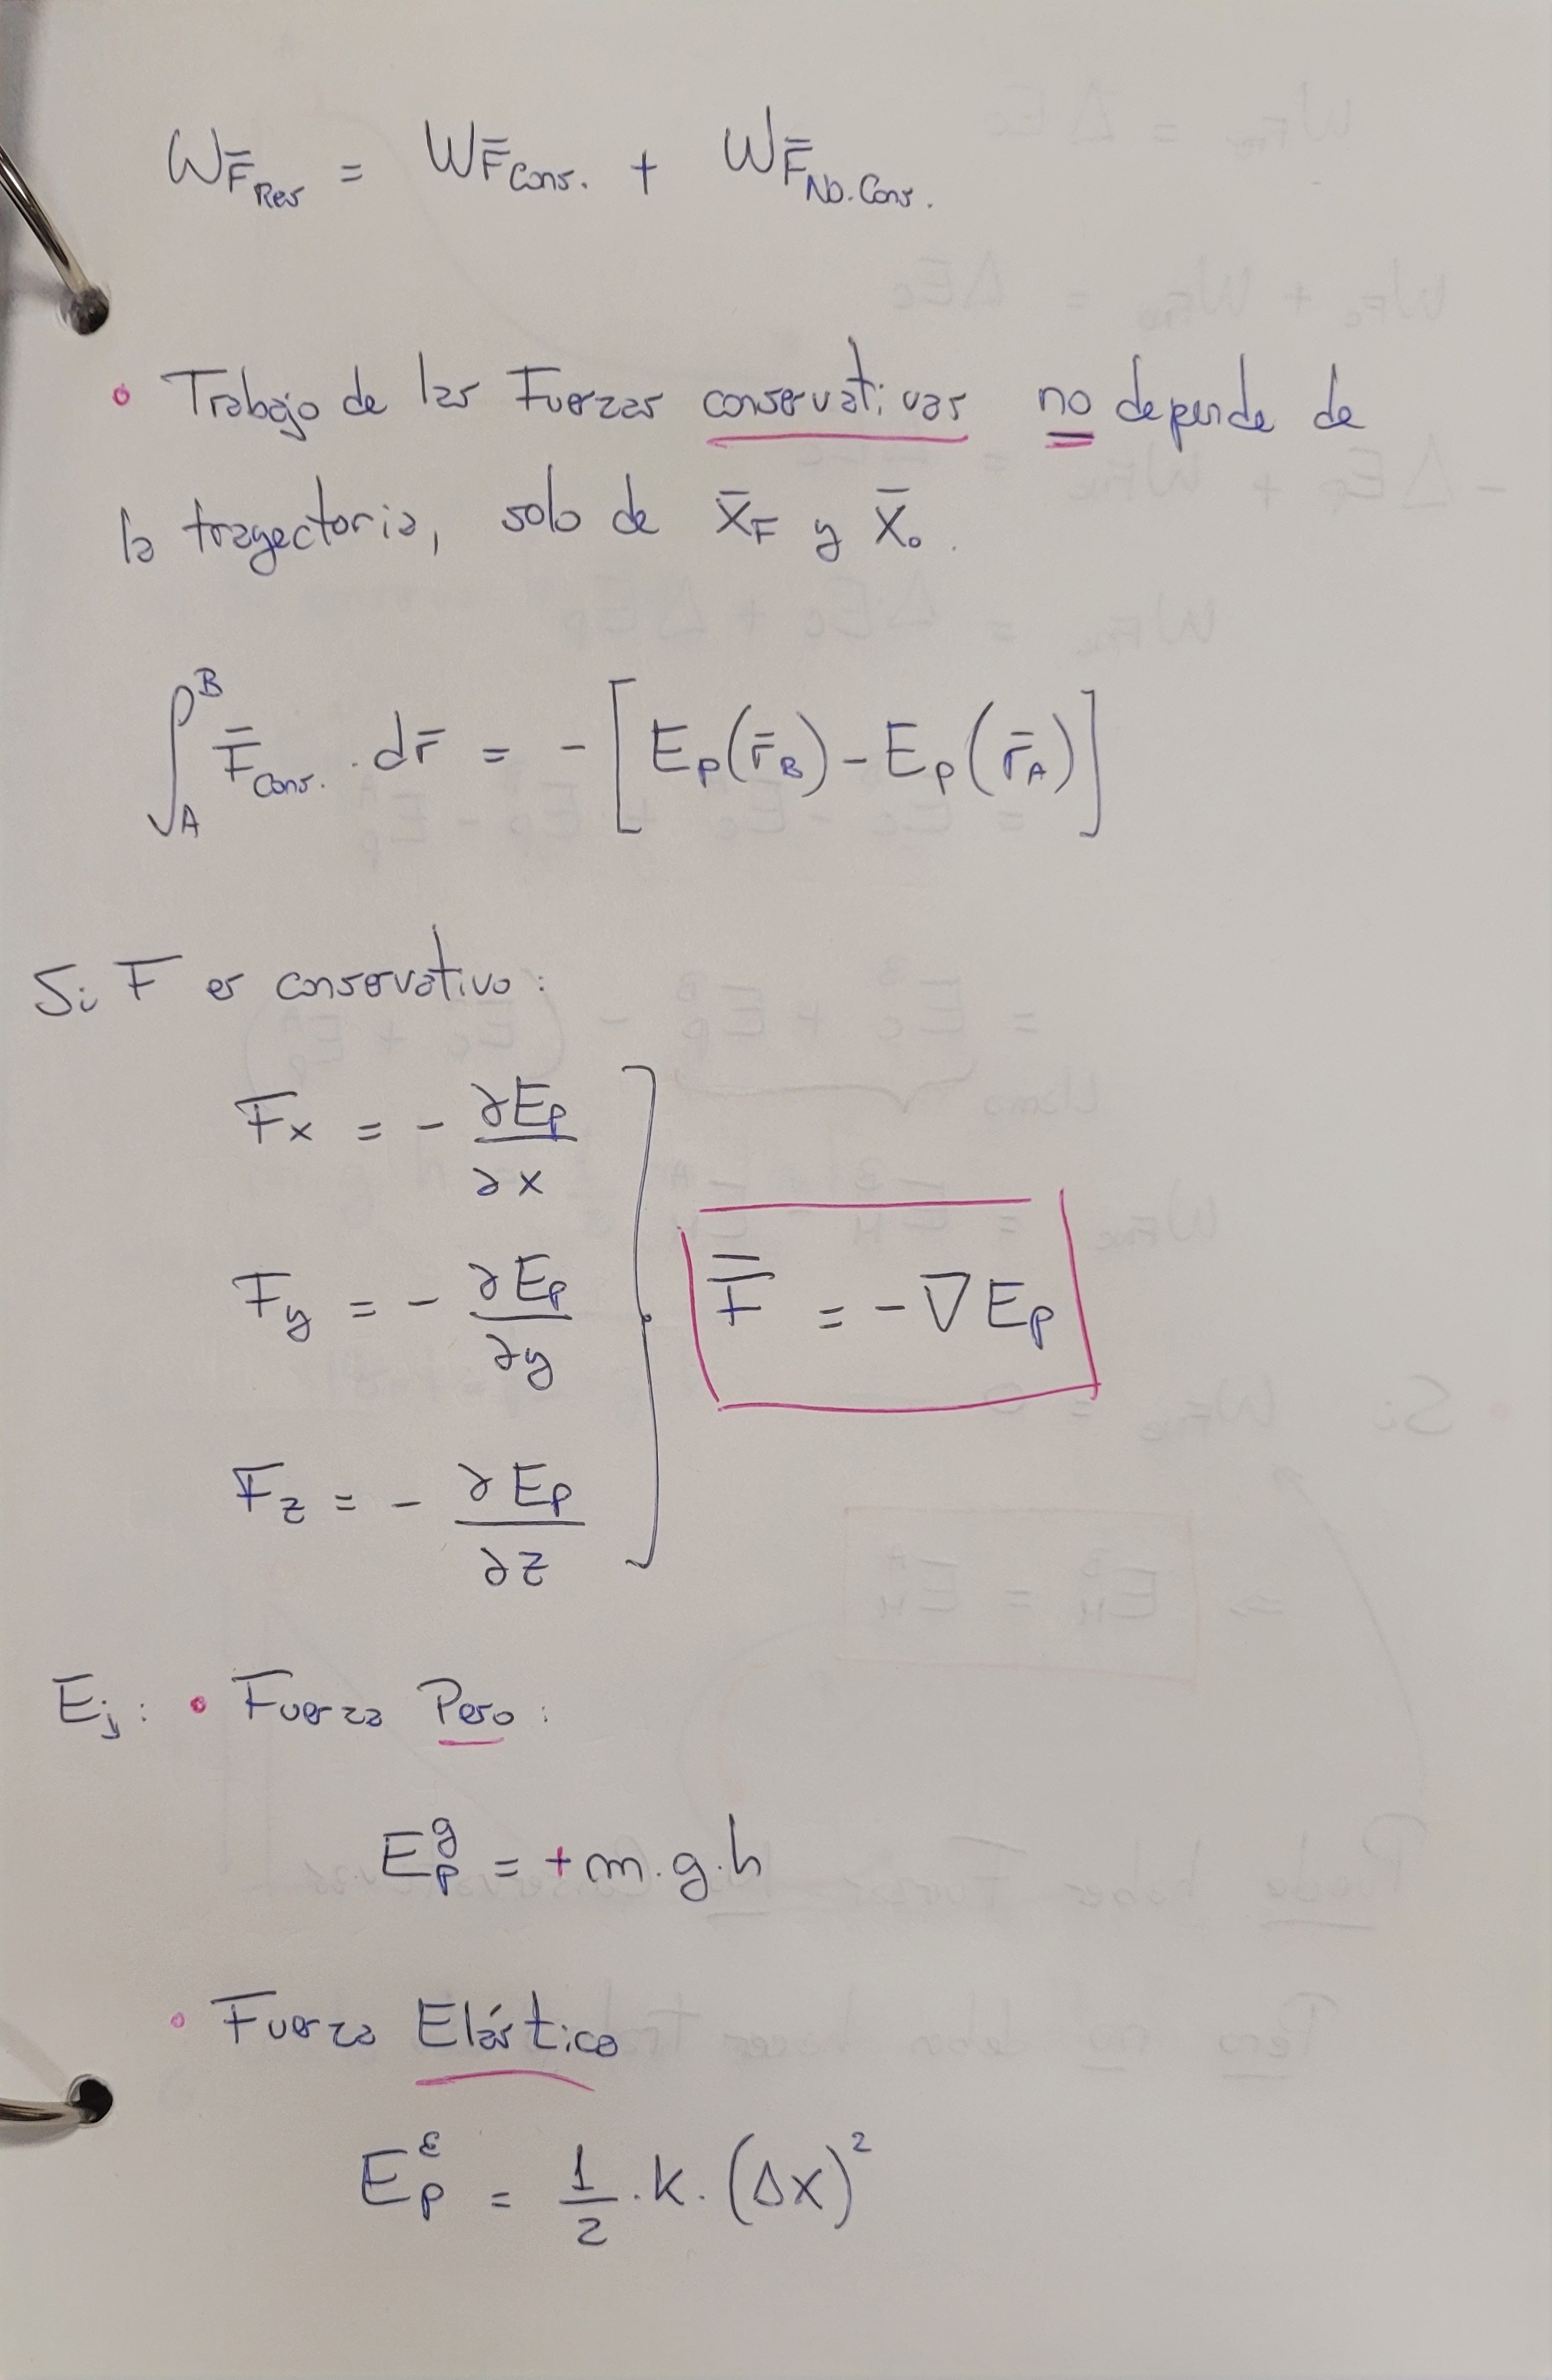 W F̄Res = W F̄Cons. + W F̄No.Cons.
• Trabajo de las Fuerzas conservativas no depende de
la trayectoria, solo de x̄F y x̄o.
∫_A^B F̄Cons. · dr̄ = - [Ep(r̄B) - Ep(r̄A)]
Si F es conservativo:
Fx = - ∂Ep/∂x
Fy = - ∂Ep/∂y
F̄ = -∇Ep
Fz = - ∂Ep/∂z
Ej: • Fuerza Peso:
Ep^g = +m.g.h
• Fuerza Elástica
Ep^ε = 1/2 . k. (Δx)²